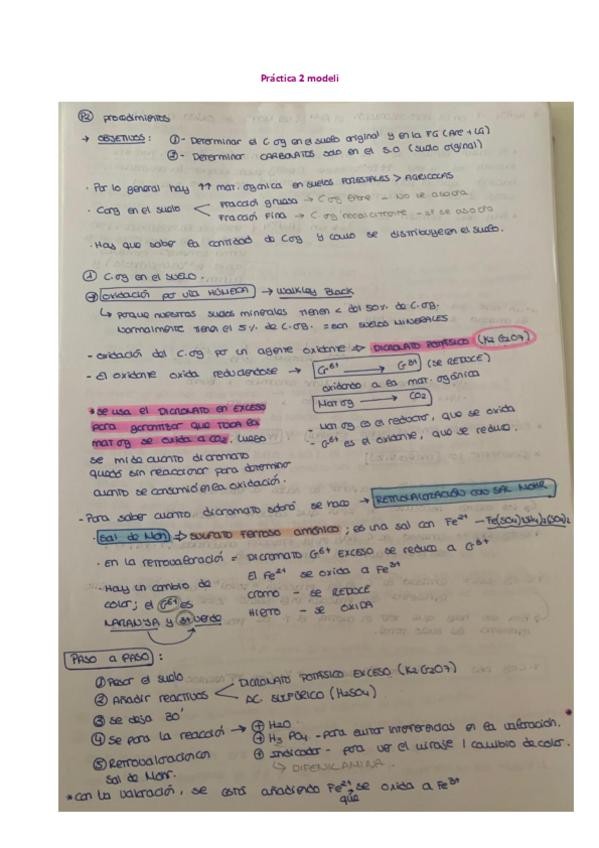 Práctica 2 modeli
P2 procedimientos
→ OBJETIVOS: ①- Determinar el C org en el suelo original y en la FG (Are + LG)
②- Determinar CARBONATOS solo en el S.O (suelo original)
· Por lo general hay ↑↑ mat. orgánica en suelos FORESTALES > AGRICOLAS
· Corg en el suelo < Fracción gruesa → C org libre - No se asocia
Fracción Fina → C org recalcitrante - si se asocia
· Hay que saber la cantidad de Corg y como se distribuye en el suelo.
① C.org en el SUELO.
→ oxidación por vía HÚMEDA → Walkley Black
↳ porque nuestros suelos minerales tienen < del 50% de C.org.
Normalmente tienen el 5% de C.org. = son SUELOS MINERALES
- oxidación del C.org por un agente oxidante ⇒ DICROMATO POTÁSICO (K2Cr2O7)
- El oxidante oxida reduciendose → Cr6+ → Cr3+ (SE REDUCE)
oxidando a la mat. orgánica
Mat org → CO2
* se usa el DICROMATO en EXCESO
para garantizar que toda la
mat org se oxida a CO2. Luego
se mide cuanto dicromato
quedó sin reaccionar para determinar
cuanto se consumió en la oxidación.
- Mat org es el reductor, que se oxida
- Cr6+ es el oxidante, que se reduce.
- Para saber cuanto dicromato sobró se hace → RETROVALORACIÓN CON SAL MOHR
· Sal de Mohr ⇒ sulfato ferroso amónico; es una sal con Fe2+ - Fe(SO4)(NH4)2(SO4)2
· En la retrovaloración = DICROMATO Cr6+ EXCESO se reduce a Cr3+
El Fe2+ se oxida a Fe3+
· Hay un cambio de
color; el Cr6+ es
NARANJA y 3+ verde
cromo - se REDUCE
HIERRO - se OXIDA
PASO A PASO:
① Pesar el suelo
② Añadir reactivos < DICROMATO POTÁSICO EXCESO (K2Cr2O7)
AC. SULFÚRICO (H2SO4)
③ Se deja 30'
④ Se para la reacción → + H2O
+ H3PO4 - para evitar interferencias en la valoración.
+ Indicador - para ver el viraje / cambio de color.
↳ DIFENILAMINA.
⑤ Retrovaloración con
Sal de Mohr.
* Con la valoración, se está añadiendo Fe2+ que se oxida a Fe3+